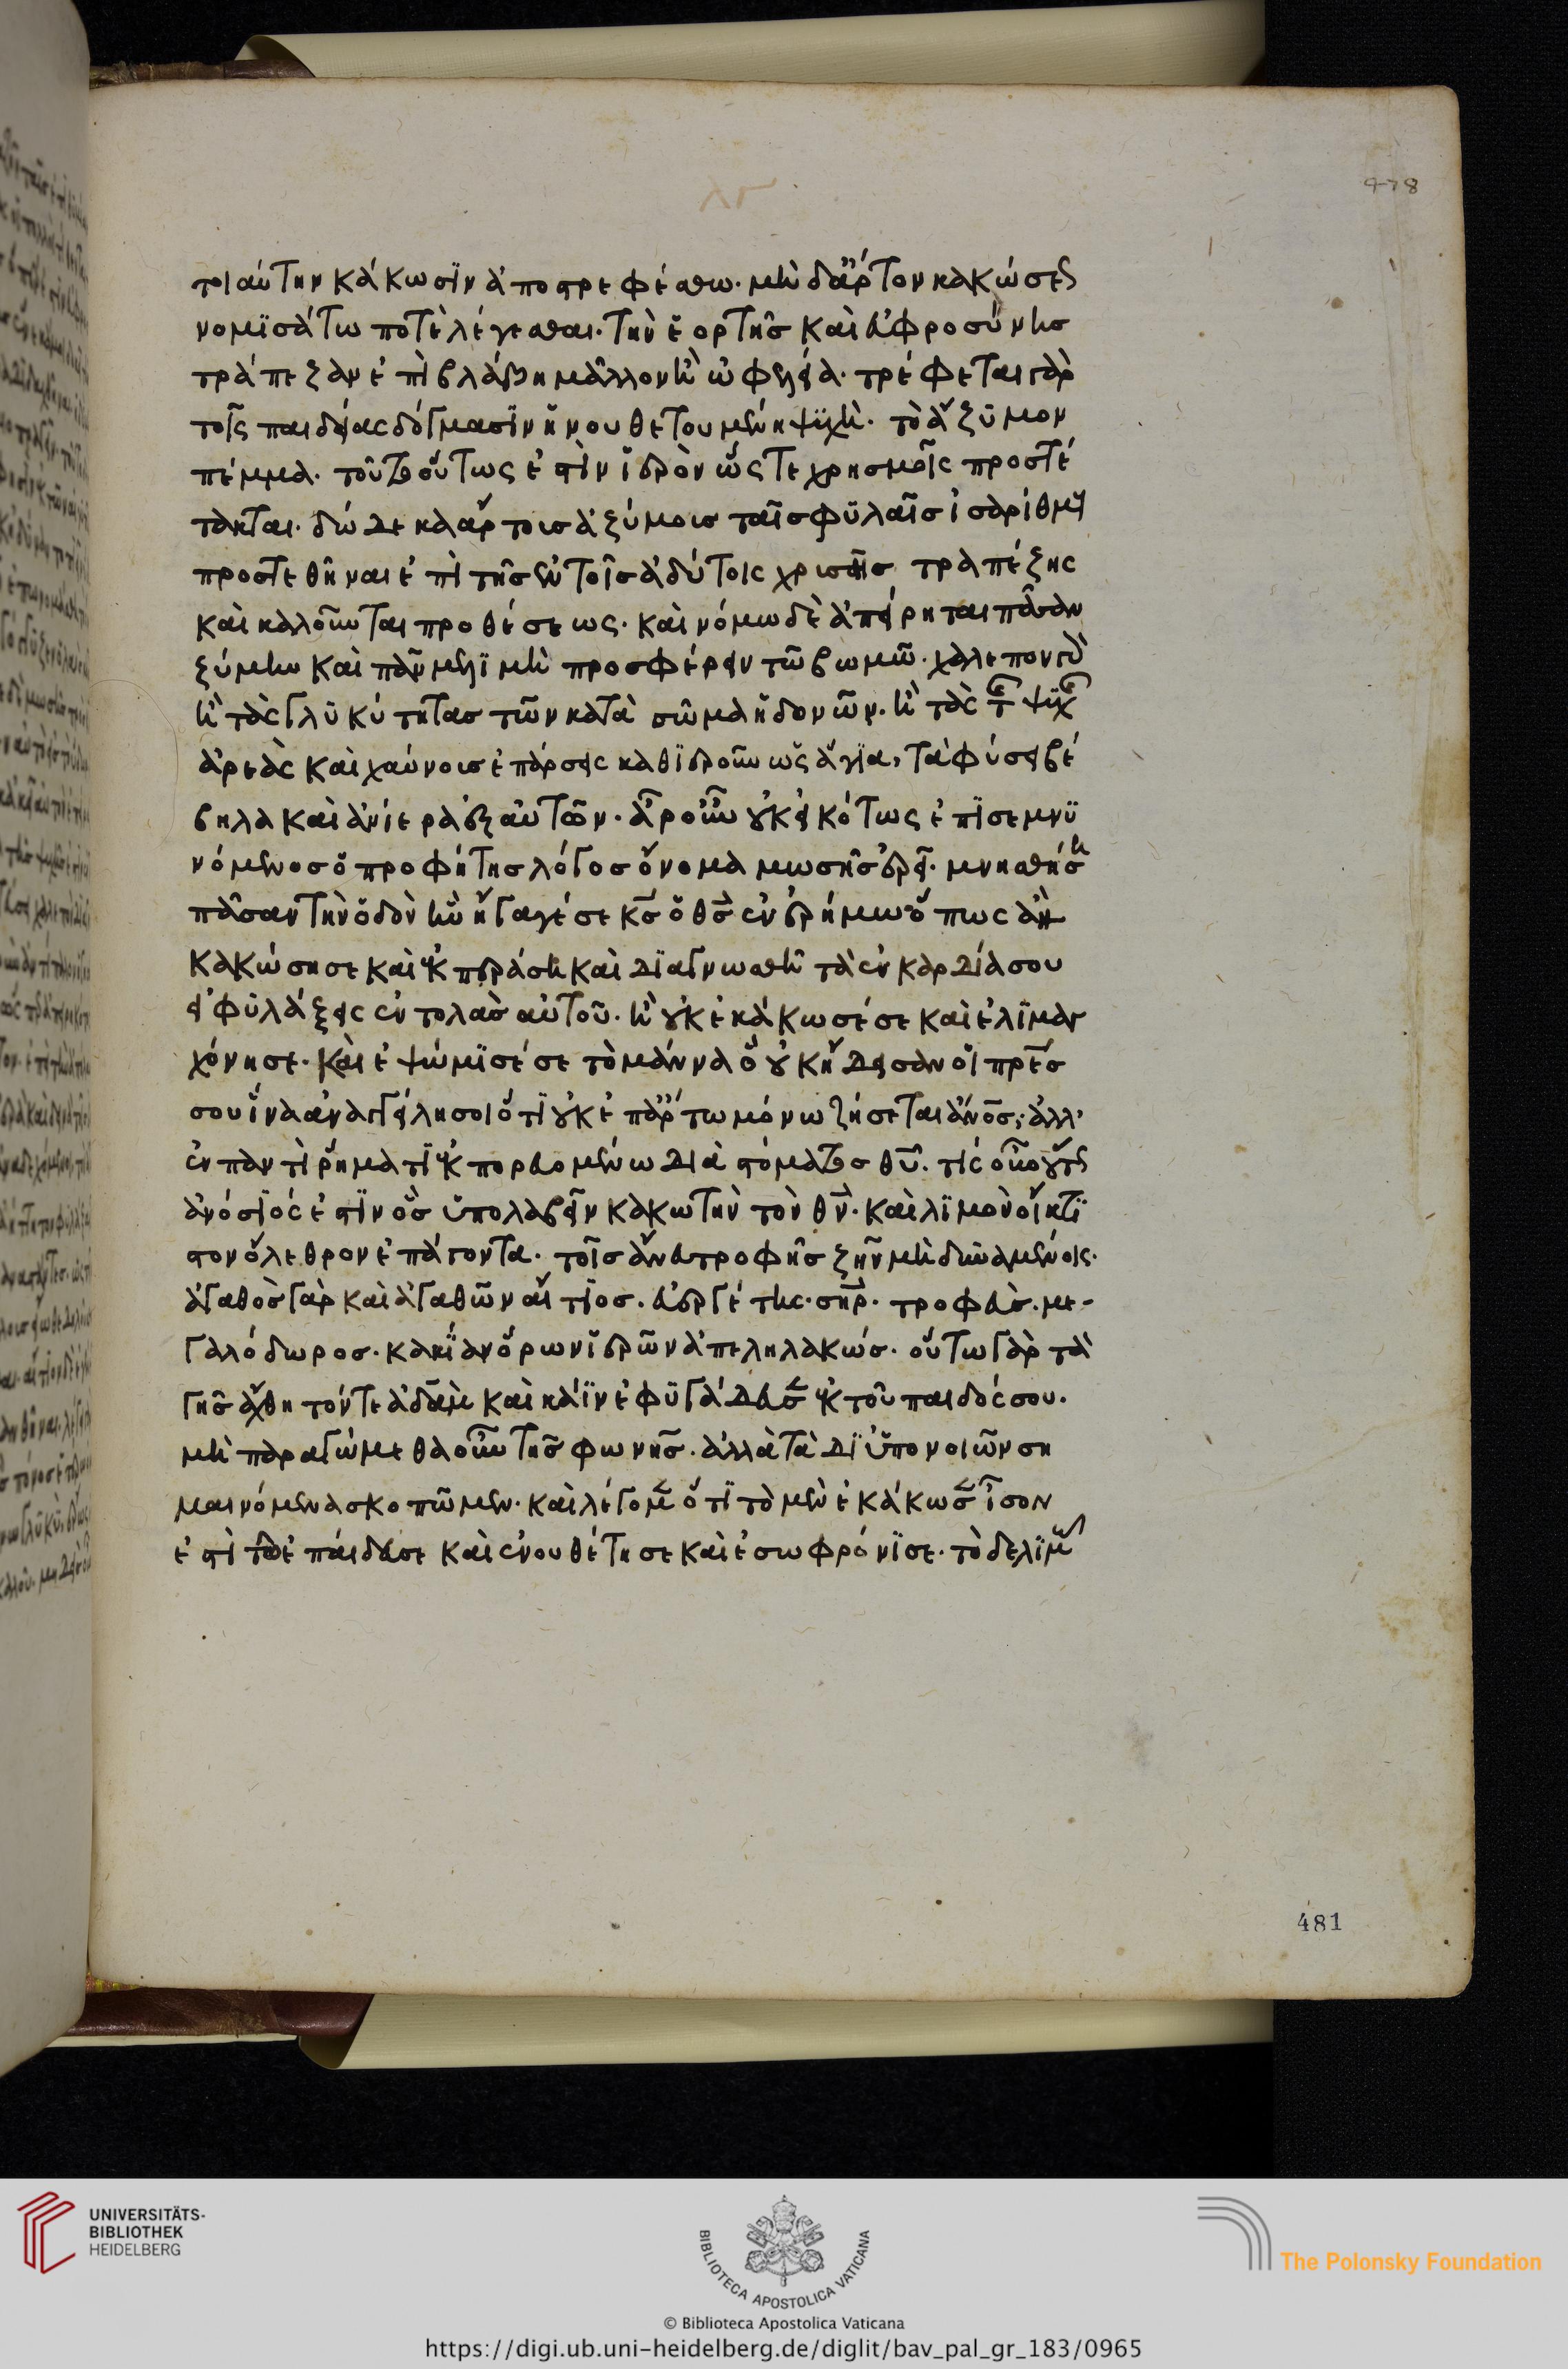 τοιαύτην κάκωσϊν ἀποστρεφέσθω· μὴ δ' ἄρτον κακώσεως
νομϊσάτω ποτὲ λέγεσθαι· τὴν ἑορτῆσ καὶ εὐφροσύνησ
τράπεζαν ἐπὶ βλάβη μᾶλλον ἢ ὠφελεία· τρέφεται γὰρ
τοῖς παιδείας δόγμασϊν ἡ νουθετουμένη ψϋχὴ· τὸ ἄζϋμον
πέμμα· τοῦτο οὕτως ἐστὶν ἱερὸν ὥς τε χρησμοῖς προστέ
τακται· δώδεκα ἄρτοισ ἀζύμοισ ταῖσ φϋλαῖσ ἰσαρίθμους
προστεθῆναι ἐπὶ τῆσ ἐν τοῖσ ἀδύτοις χρισῆσ τραπέζης
καὶ καλοῦνται προθέσεως· καὶ νόμω δὲ ἀπείρηται πᾶσαν
ζύμην καὶ πᾶν μέλϊ μὴ προσφέρειν τῶ βωμῶ· χαλεπον γὰρ
ἢ τὰς γλϋκύτητασ τῶν κατὰ σῶμα ἡδονῶν· ἢ τὰς τῆς ψϋχῆς
ἀρεὰς καὶ χαύνοισ ἐπάρσεις καθϊεροῦν ὡς ἅγϊα, τὰ φύσει βέ
βηλα καὶ ἀνίερα ἐξ αὐτῶν· ἆρ οὖν οὐκ εἰκότως ἐπϊσεμνϋ
νόμενοσ ὁ προφήτησ λόγοσ ὄνομα μωσῆσ ἐρεῖ· μνησθήση
πᾶσαν τὴν ὁδὸν ἣν ἤγαγέ σε κσ ὁ θσ ἐν ἐρήμω ὅπως ἂν
κακώσησε καὶ ἐκπεράση καὶ δϊαγνωσθῆ τὰ ἐν καρδία σου
εἰ φϋλάξεις ἐντολὰσ αὐτοῦ· ἢ οὐκ ἐκάκωσέ σε καὶ ἐλϊμαγ
χόνησε· καὶ ἐψώμϊσέ σε τὸ μάννα ὃ οὐκ ἤδεισαν οἱ πρεσ
σου ἵνα ἀναγγείλη σοι ὅτϊ οὐκ ἐπ' ἄρτω μόνω ζήσεται ἄνοσ· ἀλλ'
ἐν παντὶ ῥήματϊ ἐκπορευομένω δϊὰ στόματοσ θυ· τίς οὖν οὕτως
ἀνόσϊός ἐστϊν ὃσ ὑπολαβεῖν κακωτὴν τὸν θν· καὶ λϊμὸν οἴκτϊ
στον ὄλεθρον ἐπάγοντα· τοῖσ ἄνευ τροφῆσ ζῆν μὴ δυναμένοις·
ἀγαθὸσ γὰρ καὶ ἀγαθῶν αἴτϊοσ· εὐεργέτης· σηρ· τροφεὺσ· με-
γαλόδωροσ· κακΐαν ὅρων ἱερῶν ἀπεληλακώσ· οὕτω γὰρ τὰ
γῆσ ἄχθη τόν τε ἀδὰμ καὶ κάϊν ἐφϋγάδευσ ἐκ τοῦ παιδός σου·
μὴ παραγώμεθα οὖν τῆσ φωνῆσ· ἀλλὰ τὰ δϊ' ὑπονοιῶν ση
μαινόμενα σκοπῶμεν· καὶ λέγομεν ὅτϊ τὸ μὲν ἐκάκωσ ἶσον
ἐστὶ τῶ ἐπαίδευσε καὶ ἐνουθέτησε καὶ ἐσωφρόνϊσε· τὸ δὲ λϊμ
478
481
UNIVERSITÄTS-
BIBLIOTHEK
HEIDELBERG
BIBLIOTECA APOSTOLICA VATICANA
The Polonsky Foundation
© Biblioteca Apostolica Vaticana
https://digi.ub.uni-heidelberg.de/diglit/bav_pal_gr_183/0965